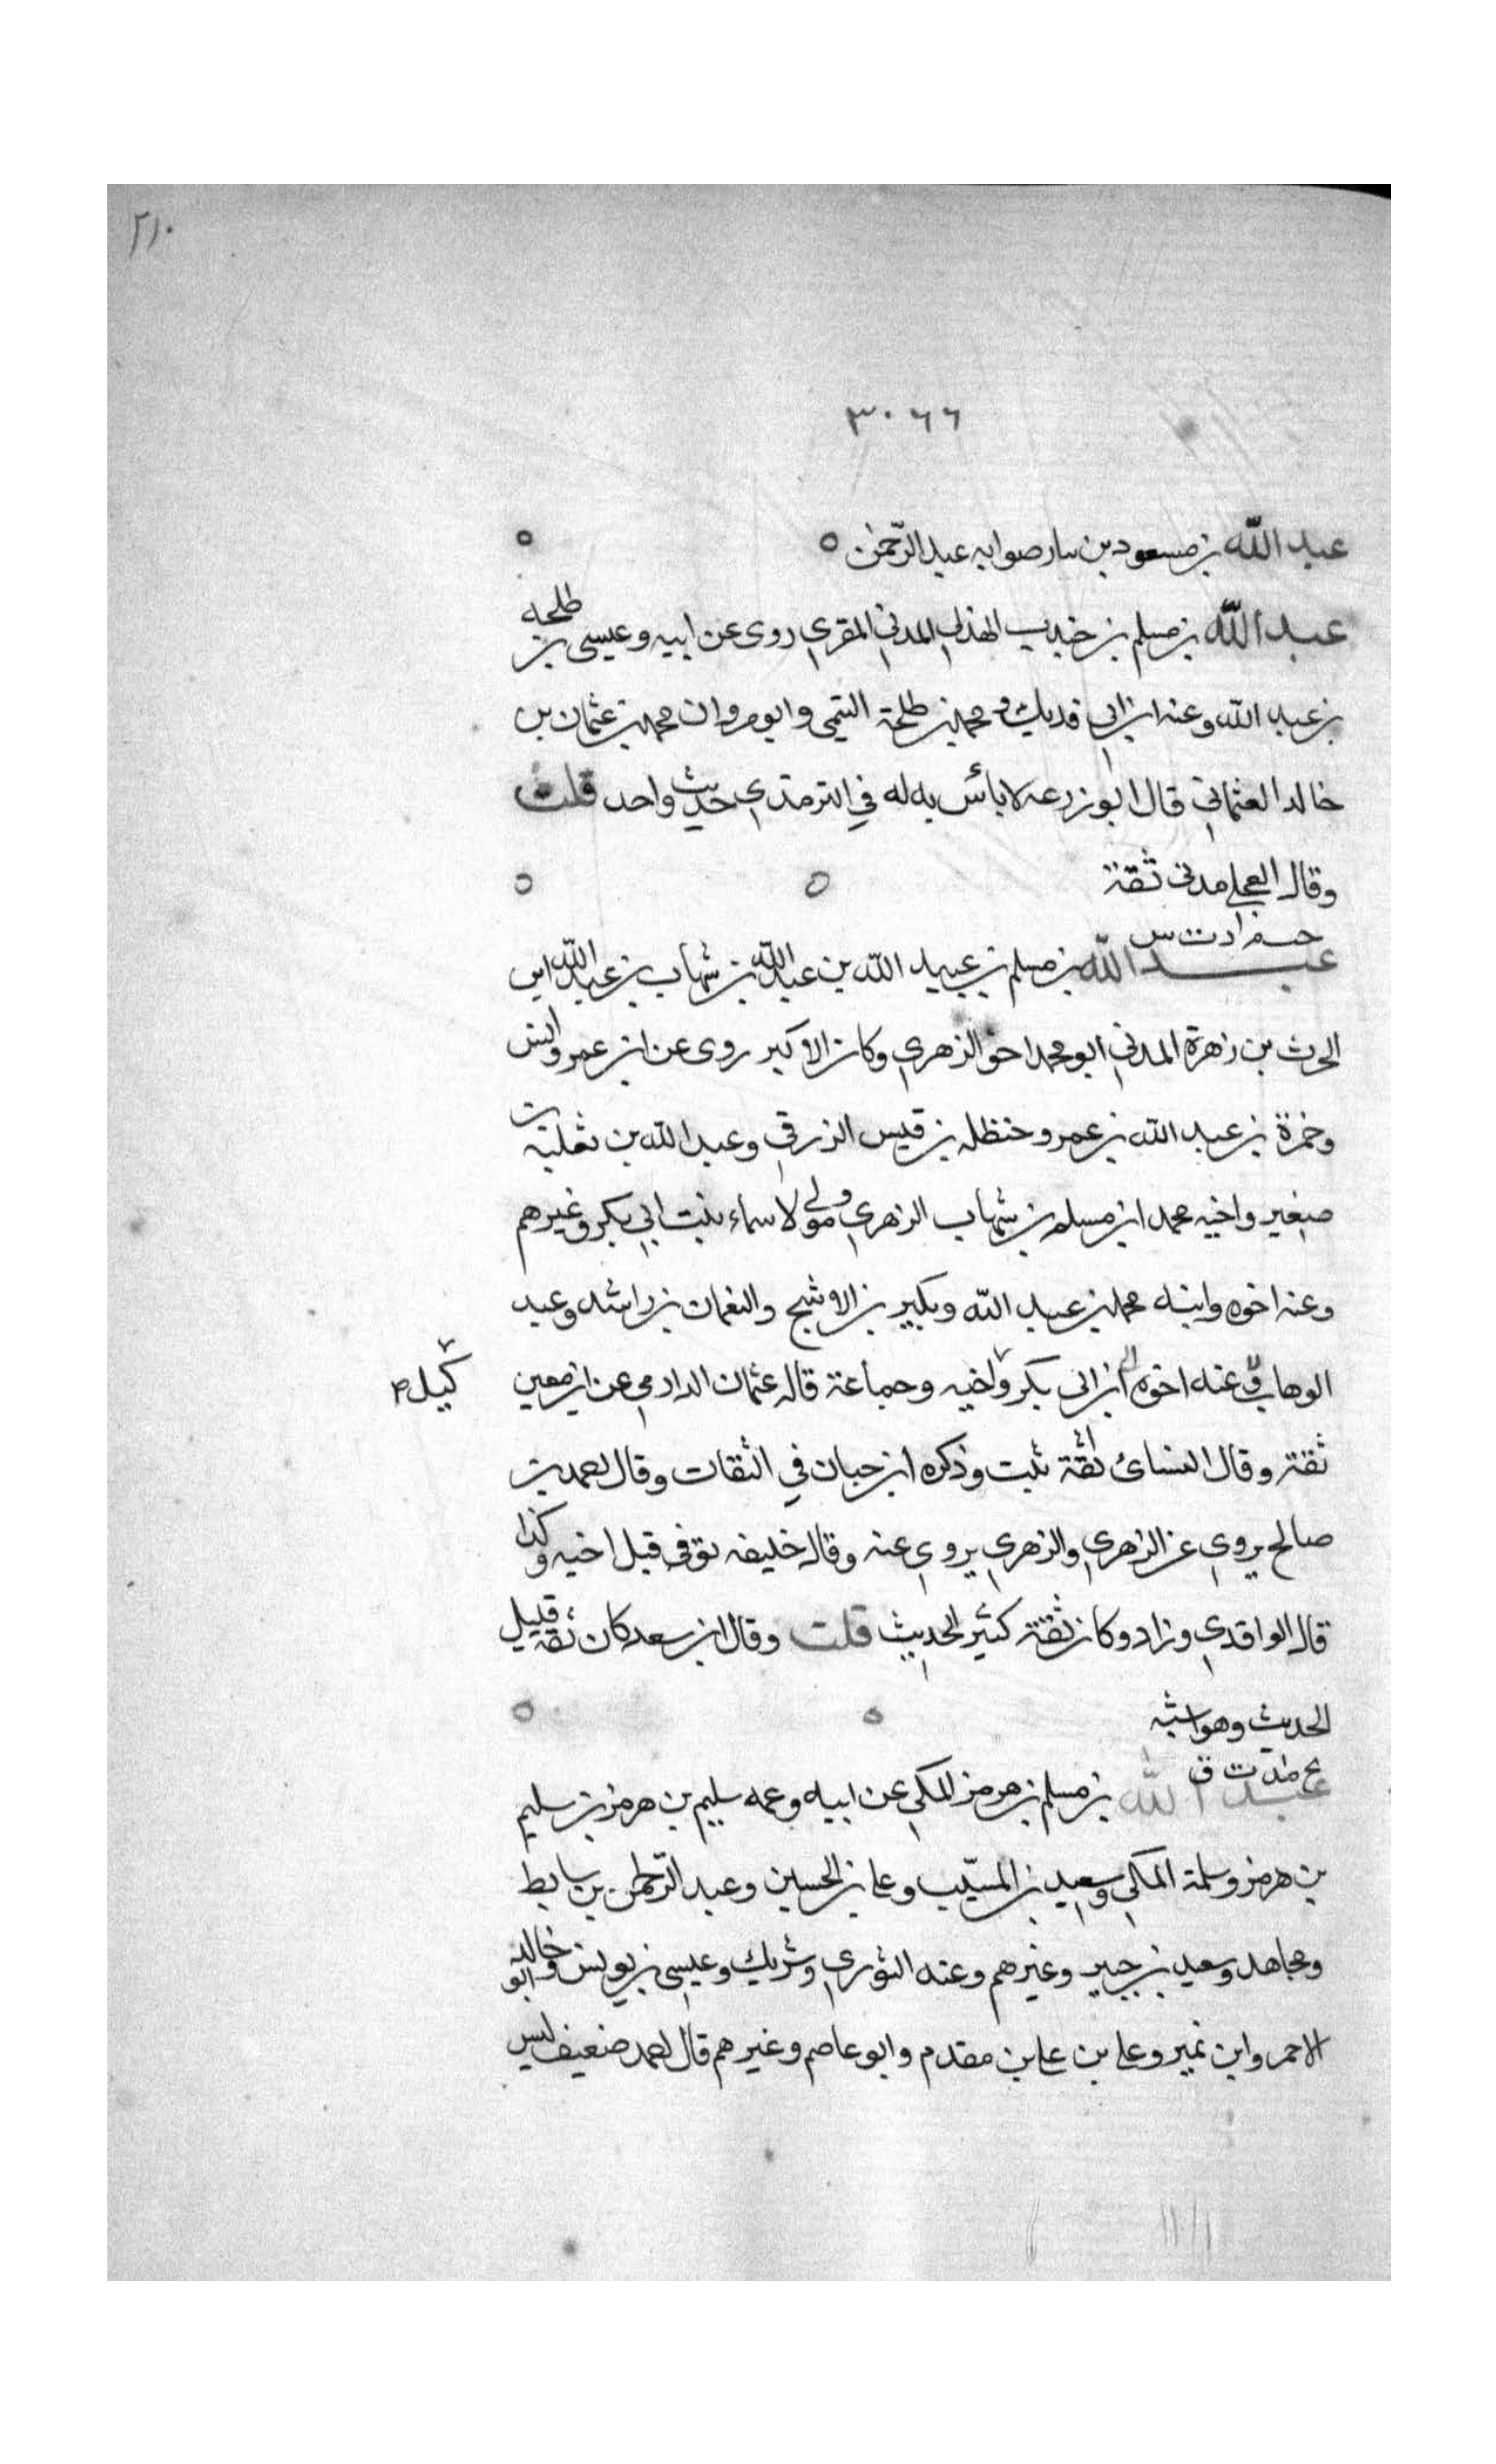 ٢١٠
٣٠٦٦
عبد الله بن مسعود بن نيار صوابه عبد الرحمن
عبد الله بن مسلم بن جندب الهذلي المدني المقري روى عن ابيه وعيسى بن طلحة
بن عبيد الله وعنه ابن ابي فديك ومحمد بن طلحة التيمي وابو مروان محمد بن عثمان بن
خالد العثماني قال ابو زرعه لا بأس به له في الترمذي حديث واحد قلت
وقال العجلي مدني ثقة
م د ت س
عبد الله بن مسلم بن عبيد الله بن عبد الله بن شهاب بن عبد الله ابن
الحرث بن زهرة المدني ابو محمد اخو الزهري وكان الاكبر روى عن ابن عمر وانس
وحمزة بن عبد الله بن عمر وحنظله بن قيس الزرقي وعبد الله بن ثعلبة بن
صغير واخيه محمد ابن مسلم بن شهاب الزهري ومولى لاسماء بنت ابي بكر وغيرهم
وعنه اخوه وابنه محمد بن عبد الله وبكير بن الاشج والنعمان بن راشد وعبد
الوهاب وعنه اخوه ابن ابي بكر واخيه وجماعة قال عثمان الدارمي عن ابن معين
ثقة وقال النسائ ثقة ثبت وذكره ابن حبان في الثقات وقال احمد بن
صالح يروي عن الزهري والزهري يروي عنه وقال خليفه توفي قبل اخيه وكذا
قال الواقدي وزاد وكان ثقة كثير الحديث قلت وقال ابن سعد كان ثقة قليل
الحديث وهو اشبه
بخ مد ت ق
عبد الله بن مسلم بن هرمز المكي عن ابيه وعمه سليم بن هرمز بن سليم
بن هرمز وسلمة المكي وسعيد بن المسيب وعلي بن الحسين وعبد الرحمن بن سابط
ومجاهد وسعيد بن جبير وغيرهم وعنه الثوري وشريك وعيسى بن يونس وابو خالد
الاحمر وابن نمير وعلي بن علي بن مقدم وابو عاصم وغيرهم قال احمد ضعيف ليس